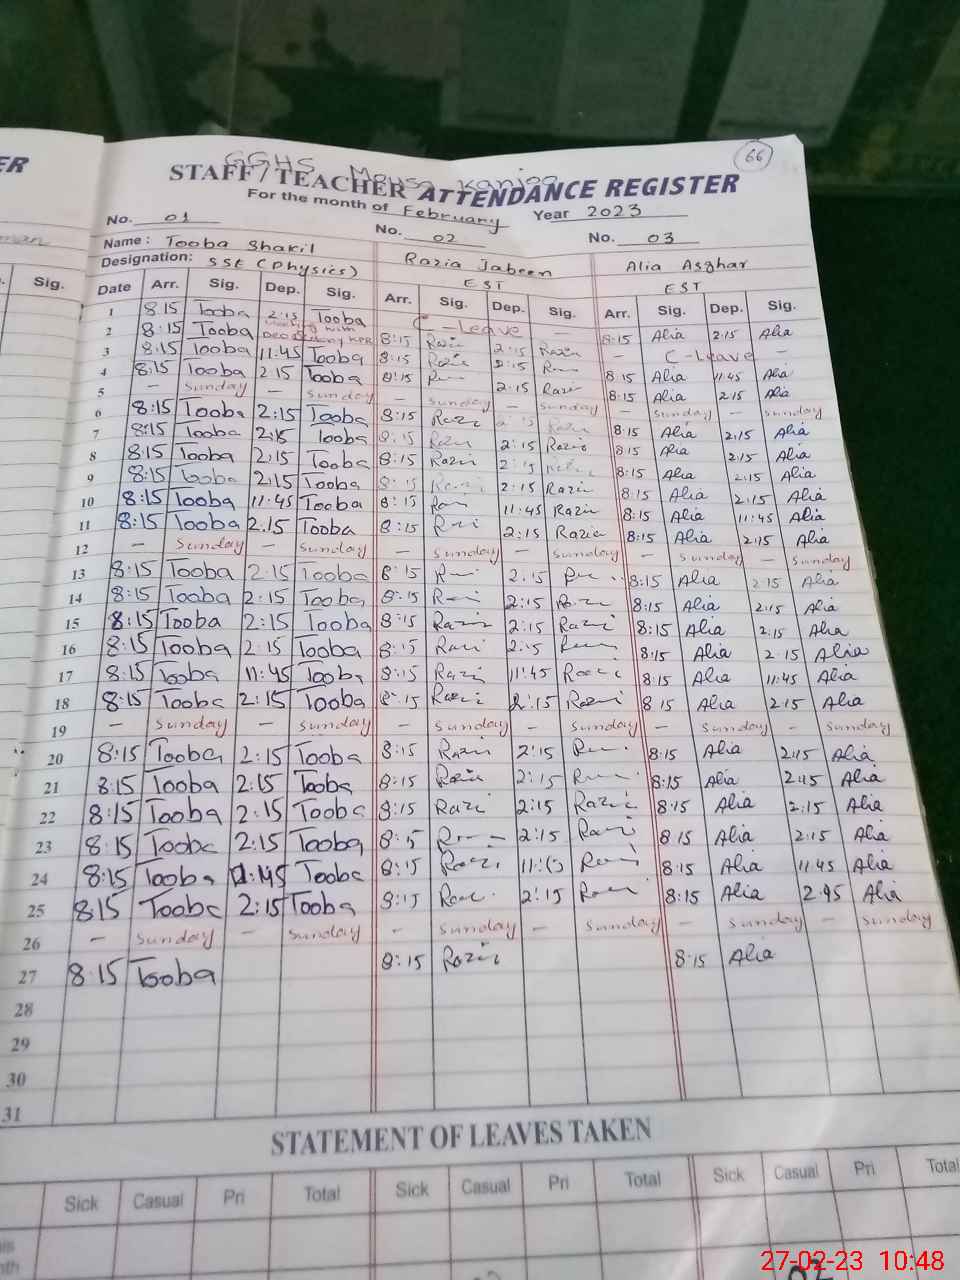 ER
66
GGHS Mousa Kanjoo
STAFF/TEACHER ATTENDANCE REGISTER
For the month of February Year 2023
No. 01 No. 02 No. 03
Name: Tooba Shakil Razia Jabeen Alia Asghar
Designation: SSE (Physics) EST EST
Sig. Date Arr. Sig. Dep. Sig. Arr. Sig. Dep. Sig. Arr. Sig. Dep. Sig.
1 8:15 Tooba 2:15 Tooba C-Leave - 8:15 Alia 2:15 Alia
2 8:15 Tooba Meeting with 8:15 Razia 2:15 Razia - C-Leave -
3 8:15 Tooba 11:45 Tooba 8:15 Razia 2:15 8:15 Alia 11:45 Alia
4 8:15 Tooba 2:15 Tooba 8:15 2:15 Razia 8:15 Alia 2:15 Alia
5 - Sunday - Sunday - Sunday - Sunday - Sunday - Sunday
6 8:15 Tooba 2:15 Tooba 8:15 Razi 2:15 8:15 Alia 2:15 Alia
7 8:15 Tooba 2:15 Tooba 8:15 Razi 2:15 Razia 8:15 Alia 2:15 Alia
8 8:15 Tooba 2:15 Tooba 8:15 Razi 2:15 8:15 Alia 2:15 Alia
9 8:15 Tooba 2:15 Tooba 8:15 Razi 2:15 Razia 8:15 Alia 2:15 Alia
10 8:15 Tooba 11:45 Tooba 8:15 11:45 Razia 8:15 Alia 11:45 Alia
11 8:15 Tooba 2:15 Tooba 8:15 2:15 Razia 8:15 Alia 2:15 Alia
12 - Sunday - Sunday - Sunday - Sunday - Sunday - Sunday
13 8:15 Tooba 2:15 Tooba 8:15 2:15 8:15 Alia 2:15 Alia
14 8:15 Tooba 2:15 Tooba 8:15 2:15 8:15 Alia 2:15 Alia
15 8:15 Tooba 2:15 Tooba 8:15 Razi 2:15 Razi 8:15 Alia 2:15 Alia
16 8:15 Tooba 2:15 Tooba 8:15 Razi 2:15 8:15 Alia 2:15 Alia
17 8:15 Tooba 11:45 Tooba 8:15 Razi 11:45 8:15 Alia 11:45 Alia
18 8:15 Tooba 2:15 Tooba 8:15 Razi 2:15 Razi 8:15 Alia 2:15 Alia
19 - Sunday - Sunday - Sunday - Sunday - Sunday - Sunday
20 8:15 Tooba 2:15 Tooba 8:15 Razi 2:15 8:15 Alia 2:15 Alia
21 8:15 Tooba 2:15 Tooba 8:15 Razia 2:15 8:15 Alia 2:15 Alia
22 8:15 Tooba 2:15 Tooba 8:15 Razi 2:15 Razi 8:15 Alia 2:15 Alia
23 8:15 Tooba 2:15 Tooba 8:15 2:15 Razi 8:15 Alia 2:15 Alia
24 8:15 Tooba 11:45 Tooba 8:15 Razi 11:45 8:15 Alia 11:45 Alia
25 8:15 Tooba 2:15 Tooba 8:15 2:15 8:15 Alia 2:45 Alia
26 - Sunday - Sunday - Sunday - Sunday - Sunday - Sunday
27 8:15 Tooba 8:15 Razi 8:15 Alia
28
29
30
31
STATEMENT OF LEAVES TAKEN
Sick Casual Pri Total Sick Casual Pri Total Sick Casual Pri Total
27-02-23 10:48